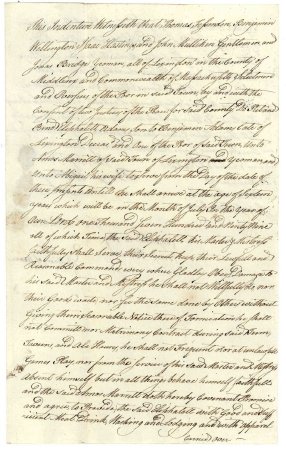 This Indenture Witnesseth that Thomas Fessenden Benjamin
Wellington Isaac Hastings and John Mulliken Gentlemen and
Jonas Bridge Yeoman, all of Lexington in the County of
Middlesex and Commonwealth of Massachusetts Selectmen
and Overseers of the Poor of said Town, by and with the
Consent of two Justices of the Peace for said County Do Put and
Bind Adams Son to Benjamin Adams late of
Lexington Deceas and One of the Poor of said Town Unto
Amos Marrett of Said Town of Lexington Yeoman and
Unto Abigail his wife to from the Day of the date
of these presents Until he Shall arrive at the age of
years which will be in the Month of July In the year of
Our Lord, one Thousand Seven Hundred and Ninety Nine
all of which Time, the Said his Master & Mistress
faithfully Shall Serve, their Secrets keep their Lawfull and
Reasonable Commands every where Gladly Obey Damage to
his Said Master and Mistress he Shall not Willfully do, nor
their Goods waste nor See the same done by Others without
Giving them Seasonable Notice there of Fornication he Shall
not Commit nor Matrimony Contract during Said Term,
Taverns and Ale Houses he Shall not Frequent nor at unlawful
Games Play, nor from the Service of his Said Master and Mistress
absent himself but in all things behave himself faithfully
and the Said Amos Marrett doth hereby Covenant Promise
and agree, to Provide the Said with Good and Suff
icient Meat Drink, Washing and Lodging and with Apparel
turned over